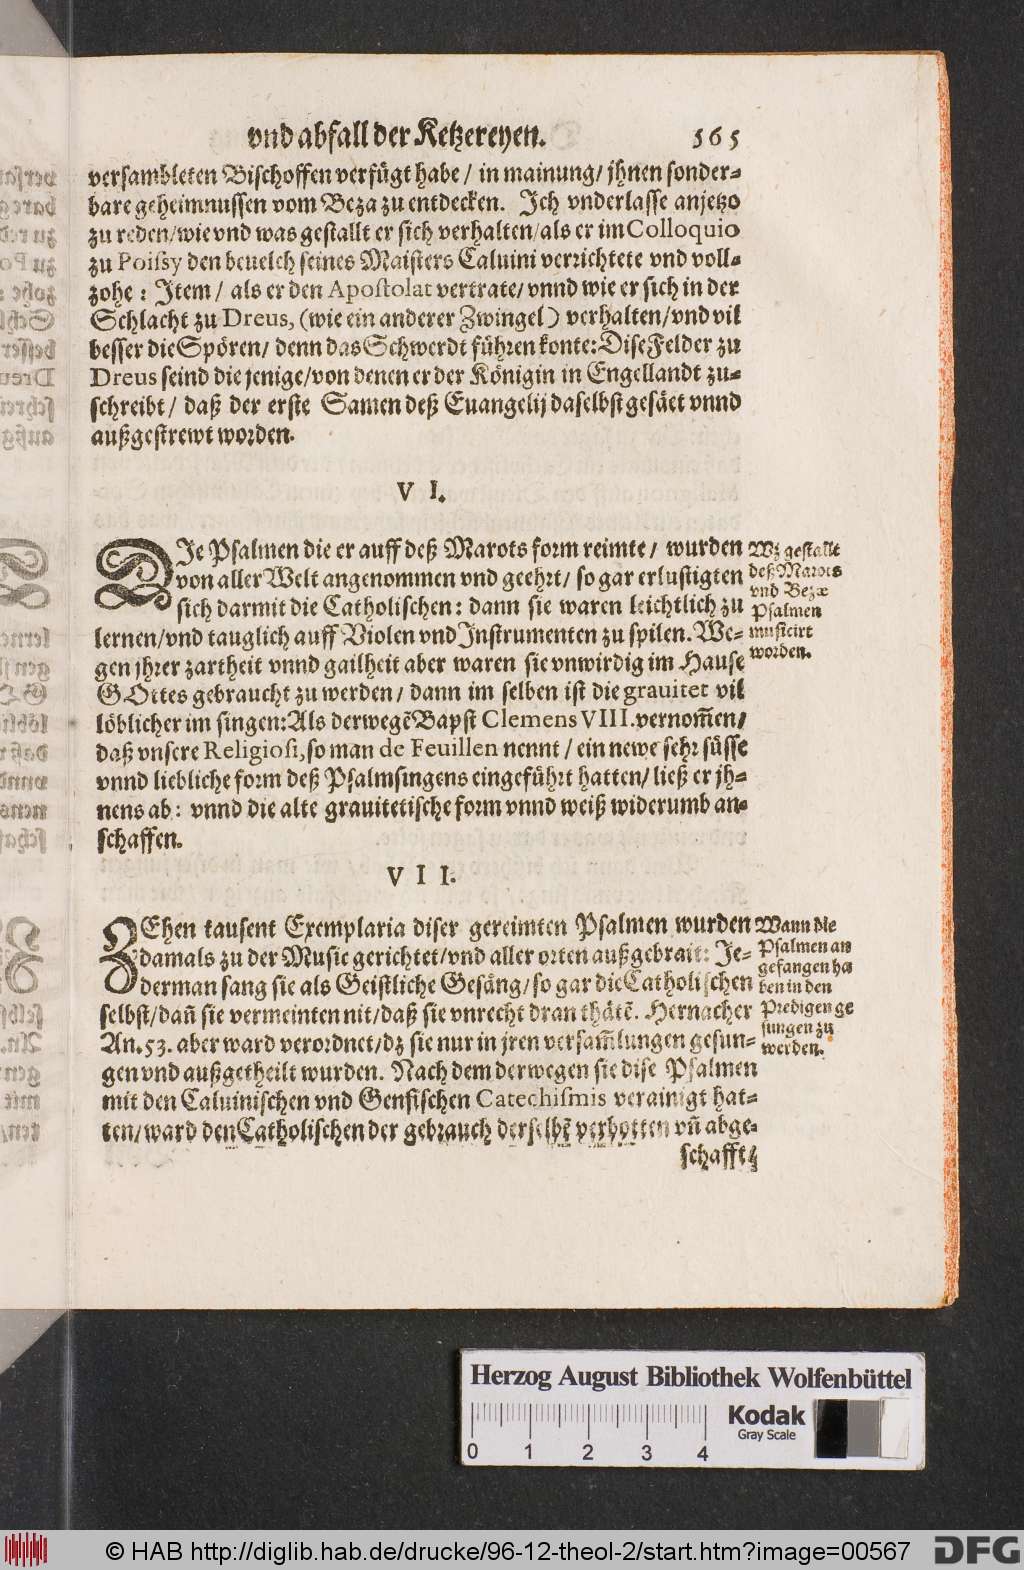 vnd abfall der Ketzereyen. 565
versambleten Bischoffen verfügt habe / in mainung / jhnen sonder-
bare geheimnussen vom Beza zu entdecken. Ich vnderlasse anjetzo
zu reden / wie vnd was gestallt er sich verhalten / als er im Colloquio
zu Poissy den beuelch seines Maisters Caluini verrichtete vnd voll-
zohe : Item / als er den Apostolat vertrate / vnnd wie er sich in der
Schlacht zu Dreus, (wie ein anderer Zwingel) verhalten / vnd vil
besser die Spören / denn das Schwerdt führen konte: Dise Felder zu
Dreus seind die jenige / von denen er der Königin in Engellandt zu-
schreibt / daß der erste Samen deß Euangelij daselbst gesäet vnnd
außgestrewt worden.
VI.
DIe Psalmen die er auff deß Marots form reimte / wurden
von aller Welt angenommen vnd geehrt / so gar erlustigten
sich darmit die Catholischen : dann sie waren leichtlich zu
lernen / vnd tauglich auff Violen vnd Instrumenten zu spilen. We-
gen jhrer zartheit vnnd gailheit aber waren sie vnwirdig im Hause
GOttes gebraucht zu werden / dann im selben ist die grauitet vil
löblicher im singen: Als derwegẽ Bapst Clemens VIII. vernom̃en /
daß vnsere Religiosi, so man de Feuillen nennt / ein newe sehr süsse
vnnd liebliche form deß Psalmsingens eingeführt hatten / ließ er jh-
nens ab : vnnd die alte grauitetische form vnnd weiß widerumb an-
schaffen.
Wz gestallt
deß Marots
vnd Bezæ
Psalmen
musicirt
worden.
VII.
ZEhen tausent Exemplaria diser gereimten Psalmen wurden
damals zu der Music gerichtet / vnd aller orten außgebrait : Je-
derman sang sie als Geistliche Gesäng / so gar die Catholischen
selbst / dañ sie vermeinten nit / daß sie vnrecht dran thätẽ. Hernacher
An. 53. aber ward verordnet / dz sie nur in jren versam̃lungen gesun-
gen vnd außgetheilt wurden. Nach dem derwegen sie dise Psalmen
mit den Caluinischen vnd Genfischen Catechismis verainigt hat-
ten / ward den Catholischen der gebrauch derselbẽ verbotten vñ abge-
schafft /
Wann die
Psalmen an
gefangen ha
ben in den
Predigen ge
sungen zu
werden.
Herzog August Bibliothek Wolfenbüttel
Kodak
Gray Scale
0 1 2 3 4
© HAB http://diglib.hab.de/drucke/96-12-theol-2/start.htm?image=00567
DFG